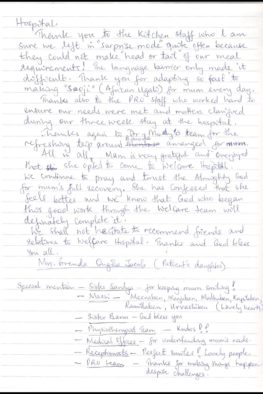 Hospital.
Thank you to the Kitchen staff who I am
sure we left in surprise mode quite often because
they could not make head or tail of our meal
requirements! The language barrier only made it
difficult. Thank you for adapting so fast to
making "Sooji" (African Ugali) for mum every day.
Thanks also to the PRO staff who worked hard to
ensure our needs were met and matters clarified
during our three week stay at the hospital.
Thanks again to team for the
refreshing trip around arranged for mum.
All in all, Mum is very grateful and overjoyed
that she opted to come to Welcare Hospital.
We continue to pray and trust the Almighty God
for mum's full recovery. She has confessed that she
feels better and we know that God who began
this good work through the Welcare team will
definately complete it.
We shall not hesitate to recommend friends and
relatives to Welfare Hospital. Thanks and God bless
you all.
Mrs. Jacob (Patient's daughter)
Special mention - Sister - for keeping mum smiling!
- (Lovely hearts)
- Sister - God bless you
- Physiotherapist Team - Kudos!!
- Medical Officer - for understanding mum's needs
- Receptionists - Perfect smiles! Lovely people
- PRO team - Thanks for making things happen
despite challenges